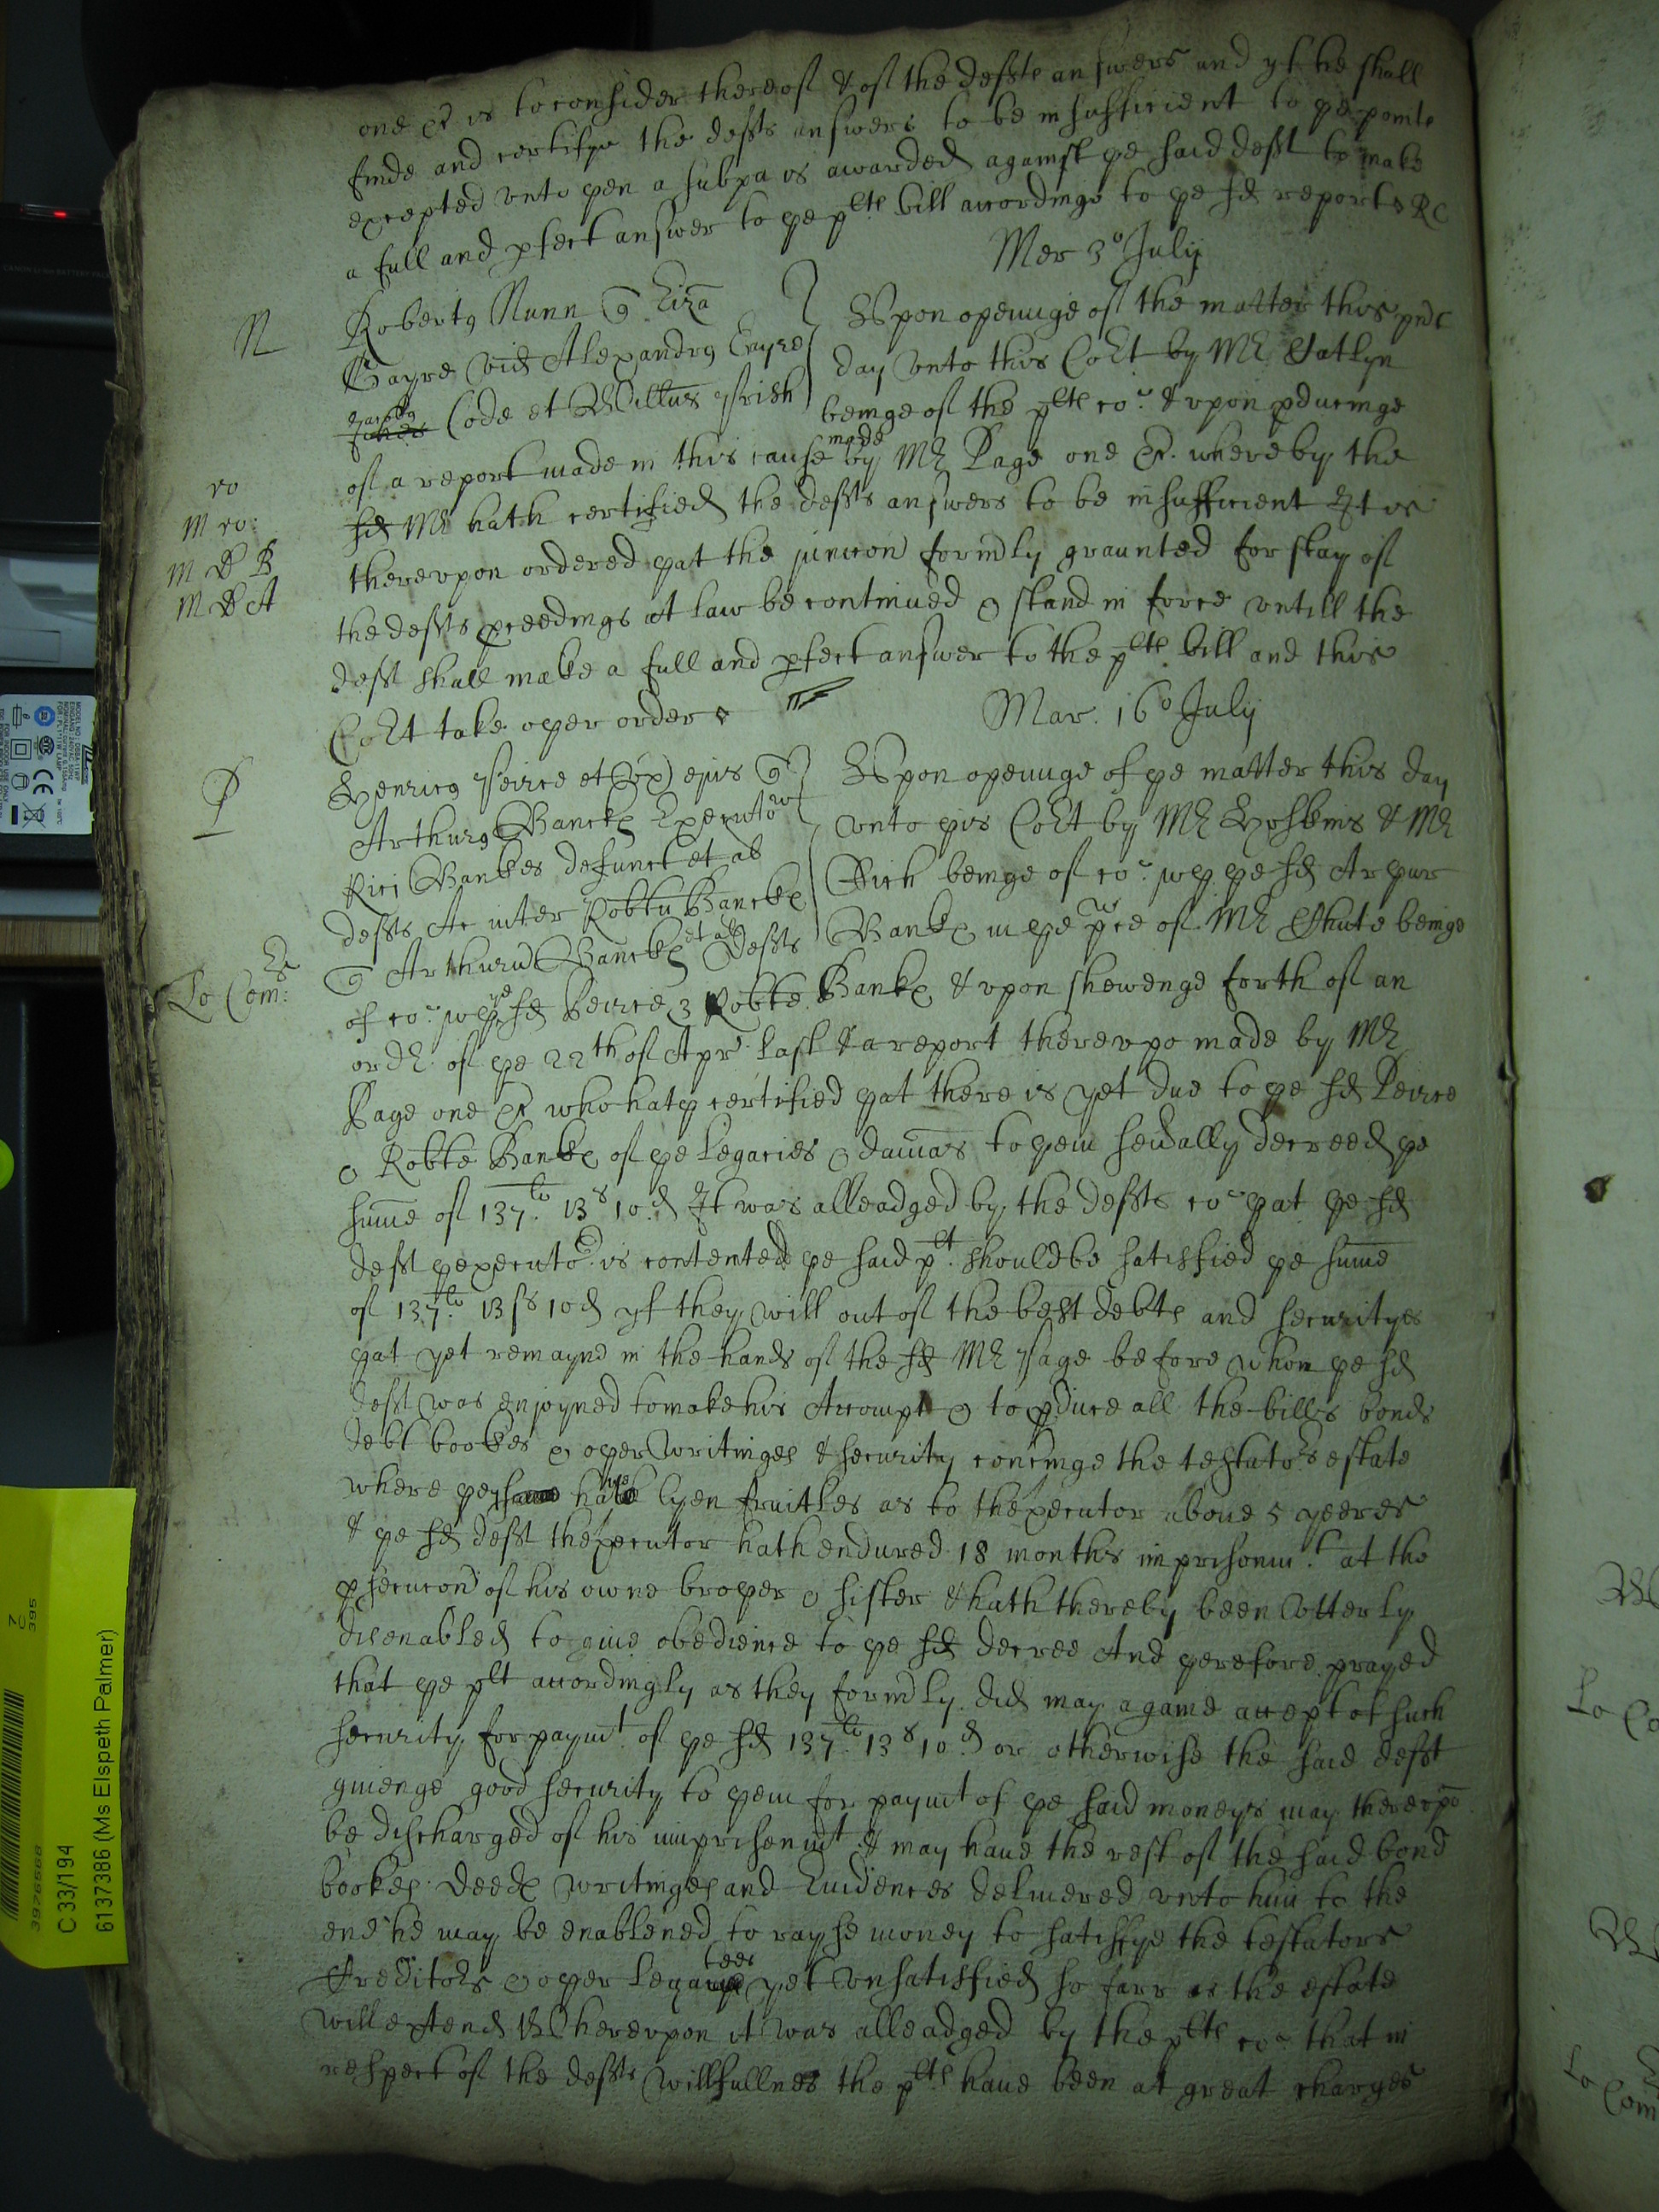 one &c is to consider thereof & of the deftes answers and yf he shall
finde and certifye the defts answers to be insufficient to ye pointe
excepted vnto yen a subpa is awarded against ye said deft to make
a full and pfect answer to ye plte bill accordinge to ye sd report RC
Mer 3o July
N
Robertg Nunn q Eliza
Gayre vid Alexandrg Eayre
Jacobg
Code et Willus Frish
Vpon openinge of the matter this pnte
day vnto this Cort by Mr Catlyn
beinge of the plte co: & vpon pducinge
of a report made in this cause by Mr Page one &c. whereby the
made
sd Mr hath certified the defts answers to be insufficient It is
therevpon ordered yat the junccon formrly graunted for stay of
the defts pceedings at law be continued & stand in force vntill the
deft shall make a full and pfect answer to the plte bill and this
Cort take oyer order
ro
M ro:
M D B
M D A
Mar. 16o July
P
Henricg Peirce et vx ejus q
Arthurg Bancke Executor
Rici Bankes defunct et al
defts Ac inter Robtu Bancke
q Arthuru Bancke et alg defts
Vpon openinge of ye matter this day
vnto yis Cort by Mr Hoskins & Mr
Rich beinge of co: wth ye sd Aryur
Banke in ye pce of Mr Chute beinge
Lo Com:
of co: wth ye sd Peirce & Robte Banke & vpon shewenge forth of an
ordr of ye 22th of Apr last & a report therevpo made by Mr
Page one &c who haty certified yat there is yet due to ye sd Peirce
& Robte Banke of ye Legacies & damas to yem sevally decreed ye
sume of 137li 13s 10d It was alleadged by the defts co: yat ye sd
deft yexecutor is contented ye said plt should be satisfied ye sume
of 137li 13s 10d yf they will out of the best debte and securityes
yat yet remayne in the hands of the sd Mr Page before whom ye sd
deft was enjoyned to make his Accompt & to pduce all the bills bonds
debt bookes & oyer writinges & security concnge the testators estate
where yey haue lyen fruitles as to thexecutor aboue 5 yeeres
& ye sd deft thexecutor hath endured 18 months imprisonmt at the
psecucon of his owne broyer & sister & hath thereby been vtterly
disenabled to giue obedience to ye sd decree And yerefore prayed
that ye plt accordingly as they formrly did may againe accept of such
security for paymt of ye sd 137li 13s 10d or otherwise the said deft
giuenge good security to yem for paymt of ye said moneys may therevpo
be discharged of his imprisonmt & may haue the rest of the said bond
bookes deede writinges and Euidences deliuered vnto him to the
end he may be enablened to rayse money to satisfye the testators
Creditors & oyer Legatees yet vnsatisfied so farr as the estate
will extend Wherevpon it was alleadged by the plte co: that in
respect of the defts willfullnes the plts haue been at great charges
C 33/194
6137386 (Ms Elspeth Palmer)
3976568